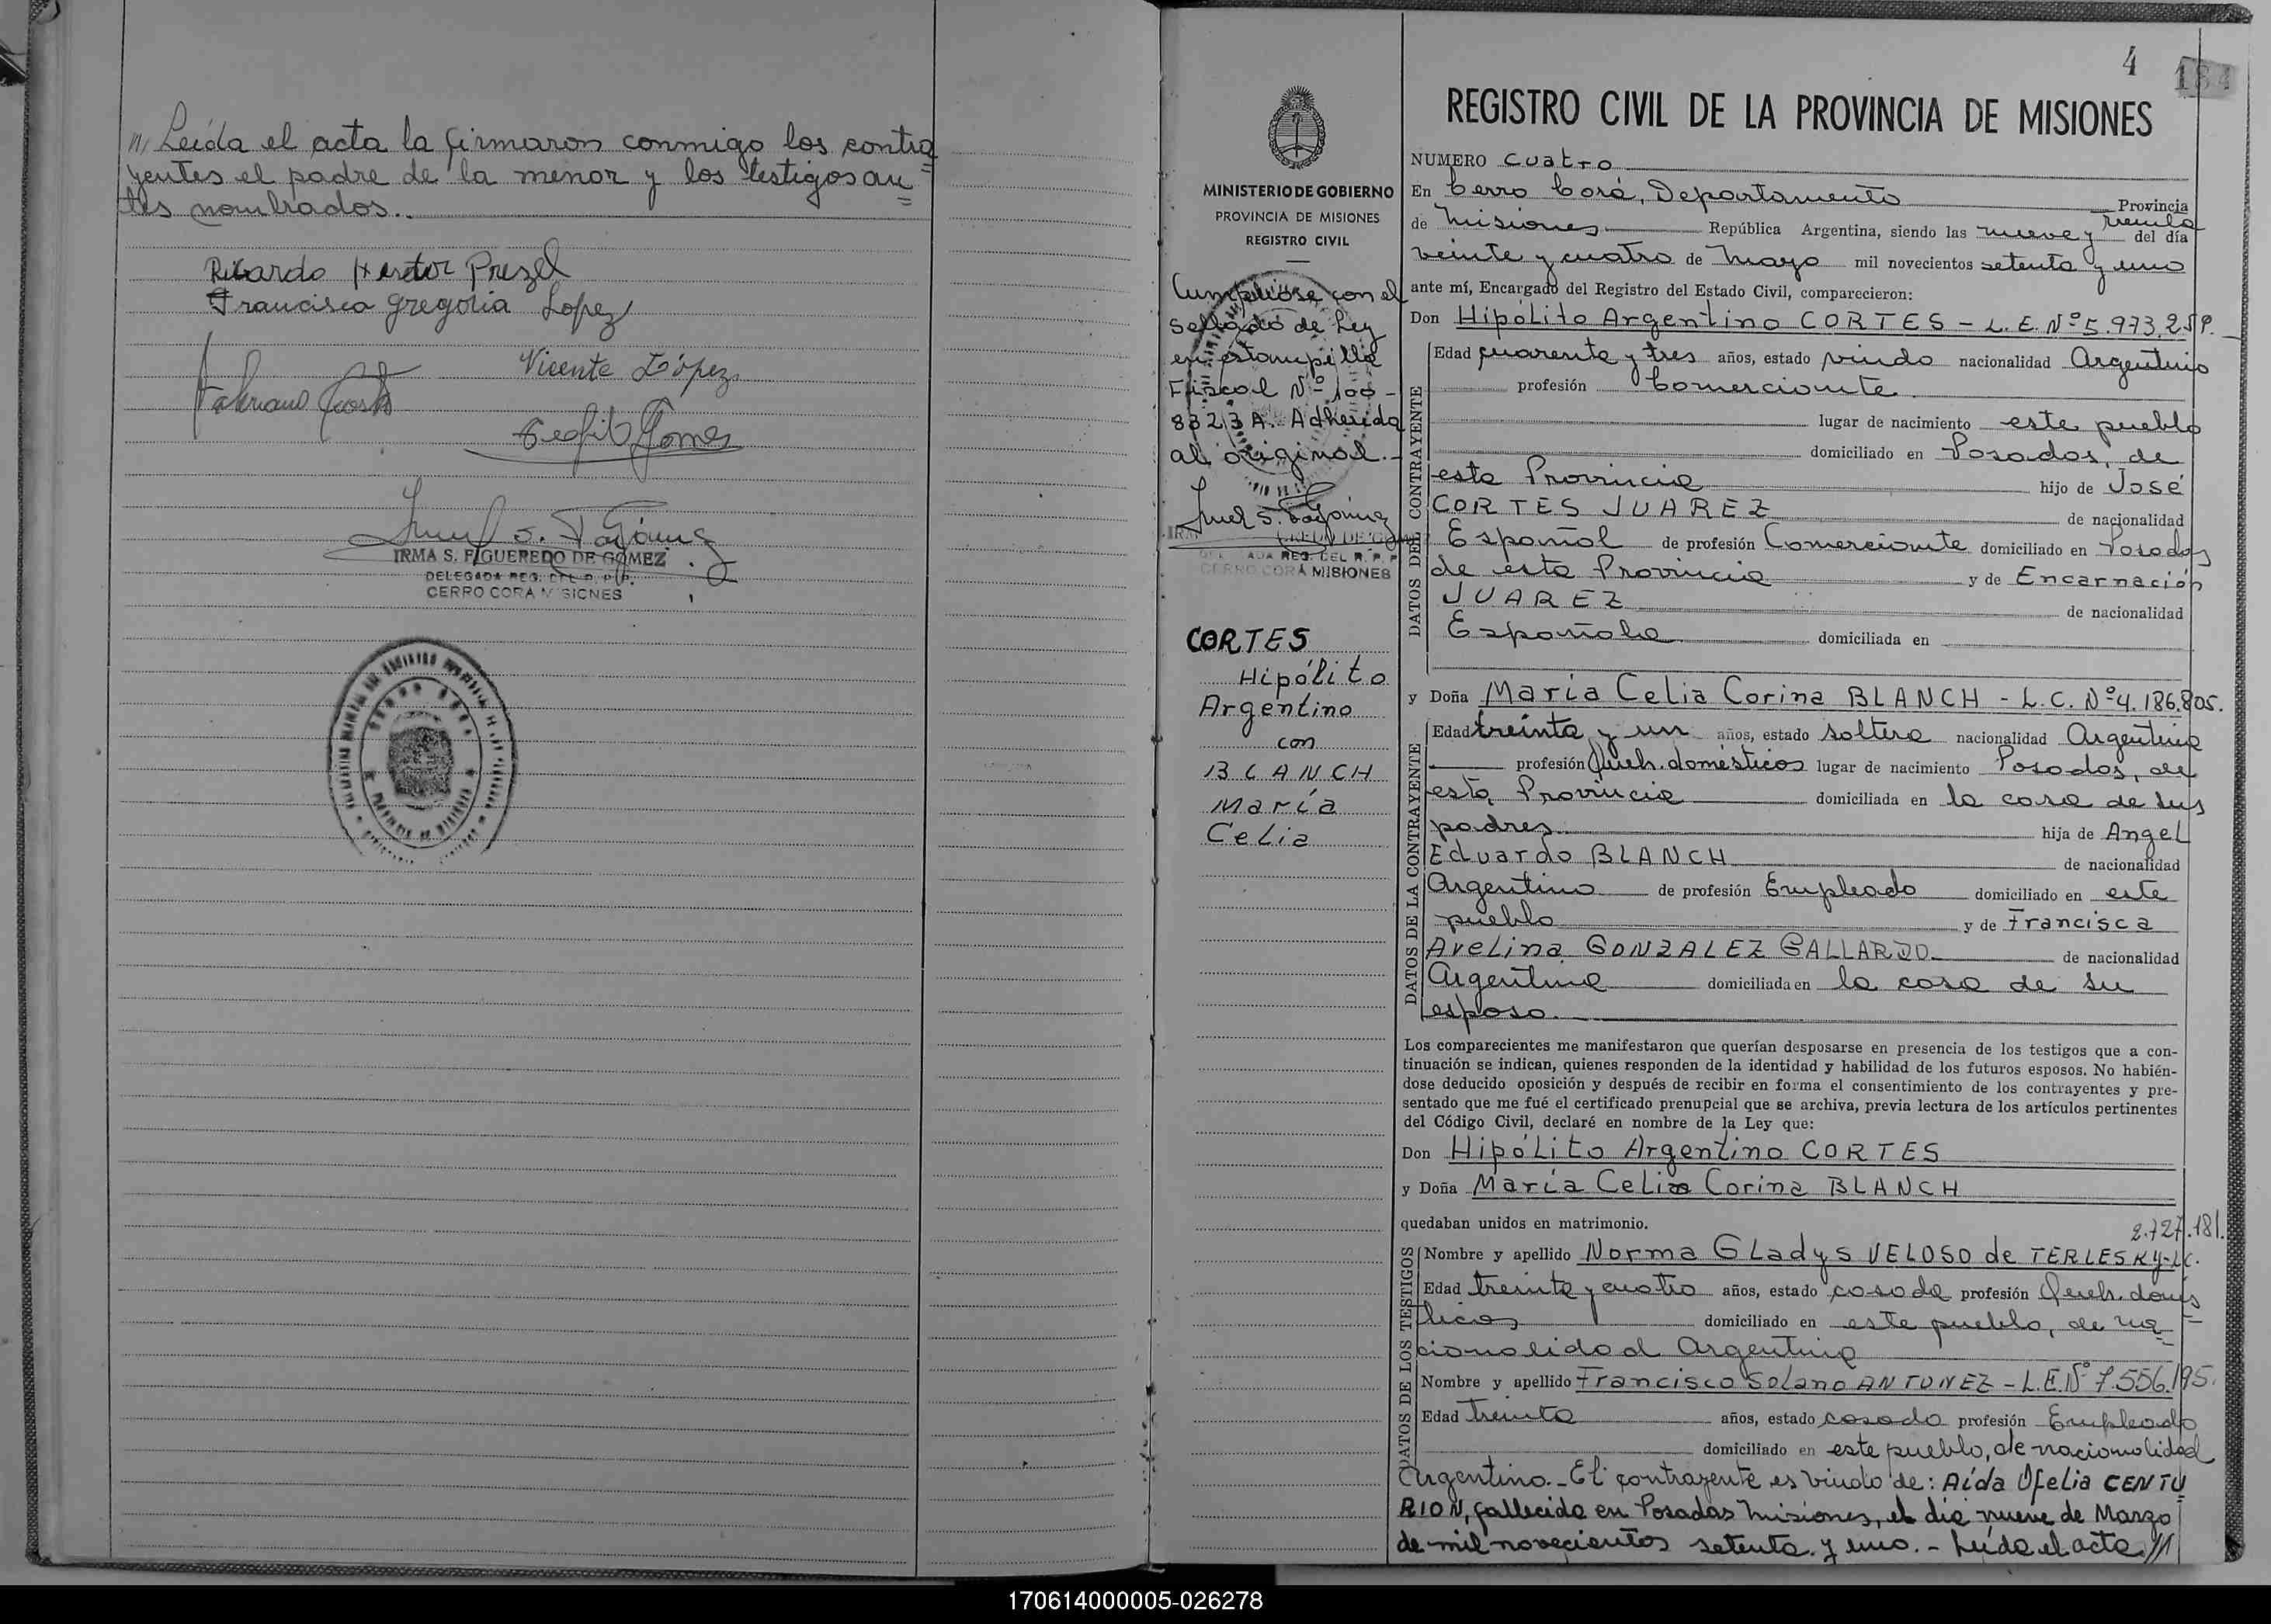 /// Leída el acta la firmaron conmigo los contra
yentes el padre de la menor y los testigos an
tes nombrados.
Ricardo Hector Prezel
Francisca Gregoria Lopez
Vicente López
IRMA S. FIGUEREDO DE GOMEZ
DELEGADA REG. DEL R. P. P.
CERRO CORA MISIONES
4
184
MINISTERIO DE GOBIERNO
PROVINCIA DE MISIONES
REGISTRO CIVIL
Cumpliose con el
Sellado de Ley
en estampilla
Fiscal Nº 100-
8323 A. Adherida
al original.-
CERRO CORA MISIONES
CORTES
Hipólito
Argentino
con
BLANCH
María
Celia
REGISTRO CIVIL DE LA PROVINCIA DE MISIONES
NUMERO cuatro
En Cerro Corá, Departamento Provincia
de Misiones República Argentina, siendo las nueve y treinta del día
veinte y cuatro de Mayo mil novecientos setenta y uno
ante mí, Encargado del Registro del Estado Civil, comparecieron:
Don Hipólito Argentino CORTES - L. E. Nº 5.973.259.
Edad cuarenta y tres años, estado viudo nacionalidad Argentino
profesión Comerciante
lugar de nacimiento este pueblo
domiciliado en Posadas, de
esta Provincia hijo de José
CORTES JUAREZ de nacionalidad
Español de profesión Comerciante domiciliado en Posadas
de esta Provincia y de Encarnación
JUAREZ de nacionalidad
Española domiciliada en
y Doña María Celia Corina BLANCH - L.C. Nº 4.186.805.
Edad treinta y un años, estado soltera nacionalidad Argentina
profesión Queh. domésticos lugar de nacimiento Posadas, de
esta Provincia domiciliada en la casa de sus
padres hija de Angel
Eduardo BLANCH de nacionalidad
Argentino de profesión Empleado domiciliado en este
pueblo y de Francisca
Avelina GONZALEZ GALLARDO de nacionalidad
Argentina domiciliada en la casa de su
esposo.
DATOS DEL CONTRAYENTE
DATOS DE LA CONTRAYENTE
Los comparecientes me manifestaron que querían desposarse en presencia de los testigos que a con-
tinuación se indican, quienes responden de la identidad y habilidad de los futuros esposos. No habién-
dose deducido oposición y después de recibir en forma el consentimiento de los contrayentes y pre-
sentado que me fué el certificado prenupcial que se archiva, previa lectura de los artículos pertinentes
del Código Civil, declaré en nombre de la Ley que:
Don Hipólito Argentino CORTES
y Doña María Celia Corina BLANCH
quedaban unidos en matrimonio.
2.727.181.
Nombre y apellido Norma Gladys VELOSO de TERLESKY-LC.
Edad treinta y cuatro años, estado casada profesión Queh. domés
ticos domiciliado en este pueblo, de na
cionalidad Argentina
Nombre y apellido Francisco Solano ANTUNEZ - L.E. Nº 7.556.195.
Edad treinta años, estado casado profesión Empleado
domiciliado en este pueblo, de nacionalidad
DATOS DE LOS TESTIGOS
Argentino.- El contrayente es viudo de: Aída Ofelia CENTU
RION, fallecida en Posadas Misiones, el día nueve de Marzo
de mil novecientos setenta y uno.- Leída el acta ///
170614000005-026278